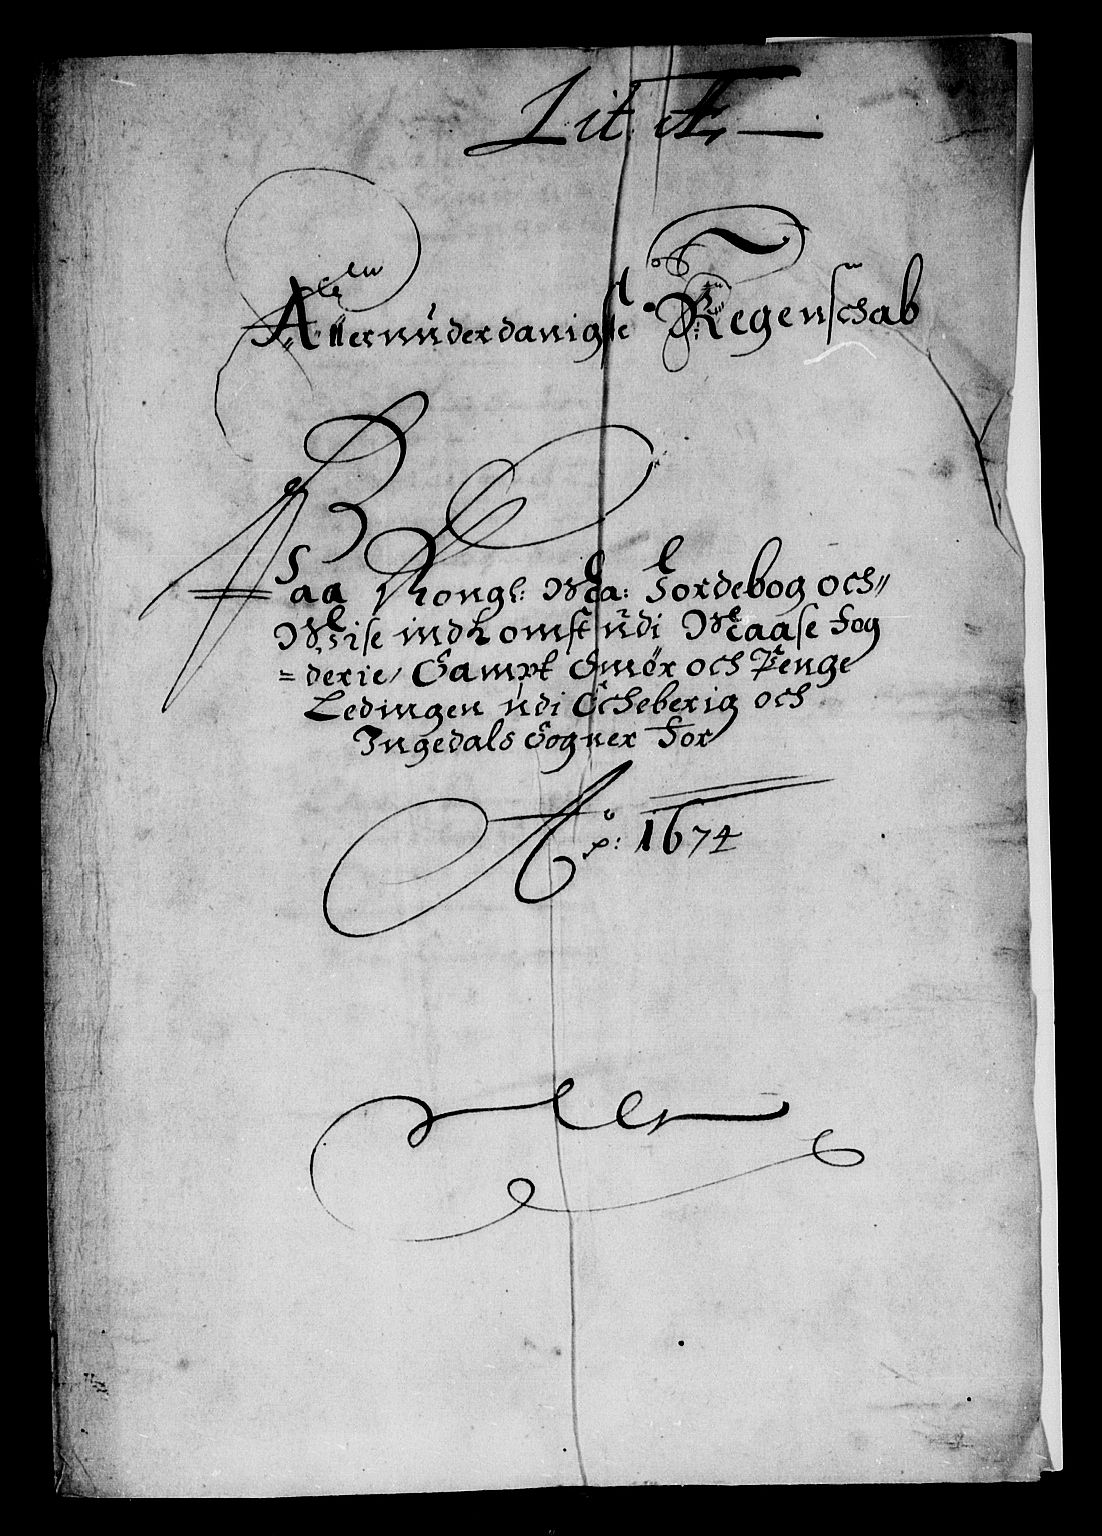 Lit A,
Allerunderdanigste Regenschab
Paa Kongl: Ma: Jordebog och
Wise indkomst udi Maase fog
=derie, Sampt Smør och Penge
Ledingen udi Scheberig och
Ingedals Sogner for
Ao: 1674